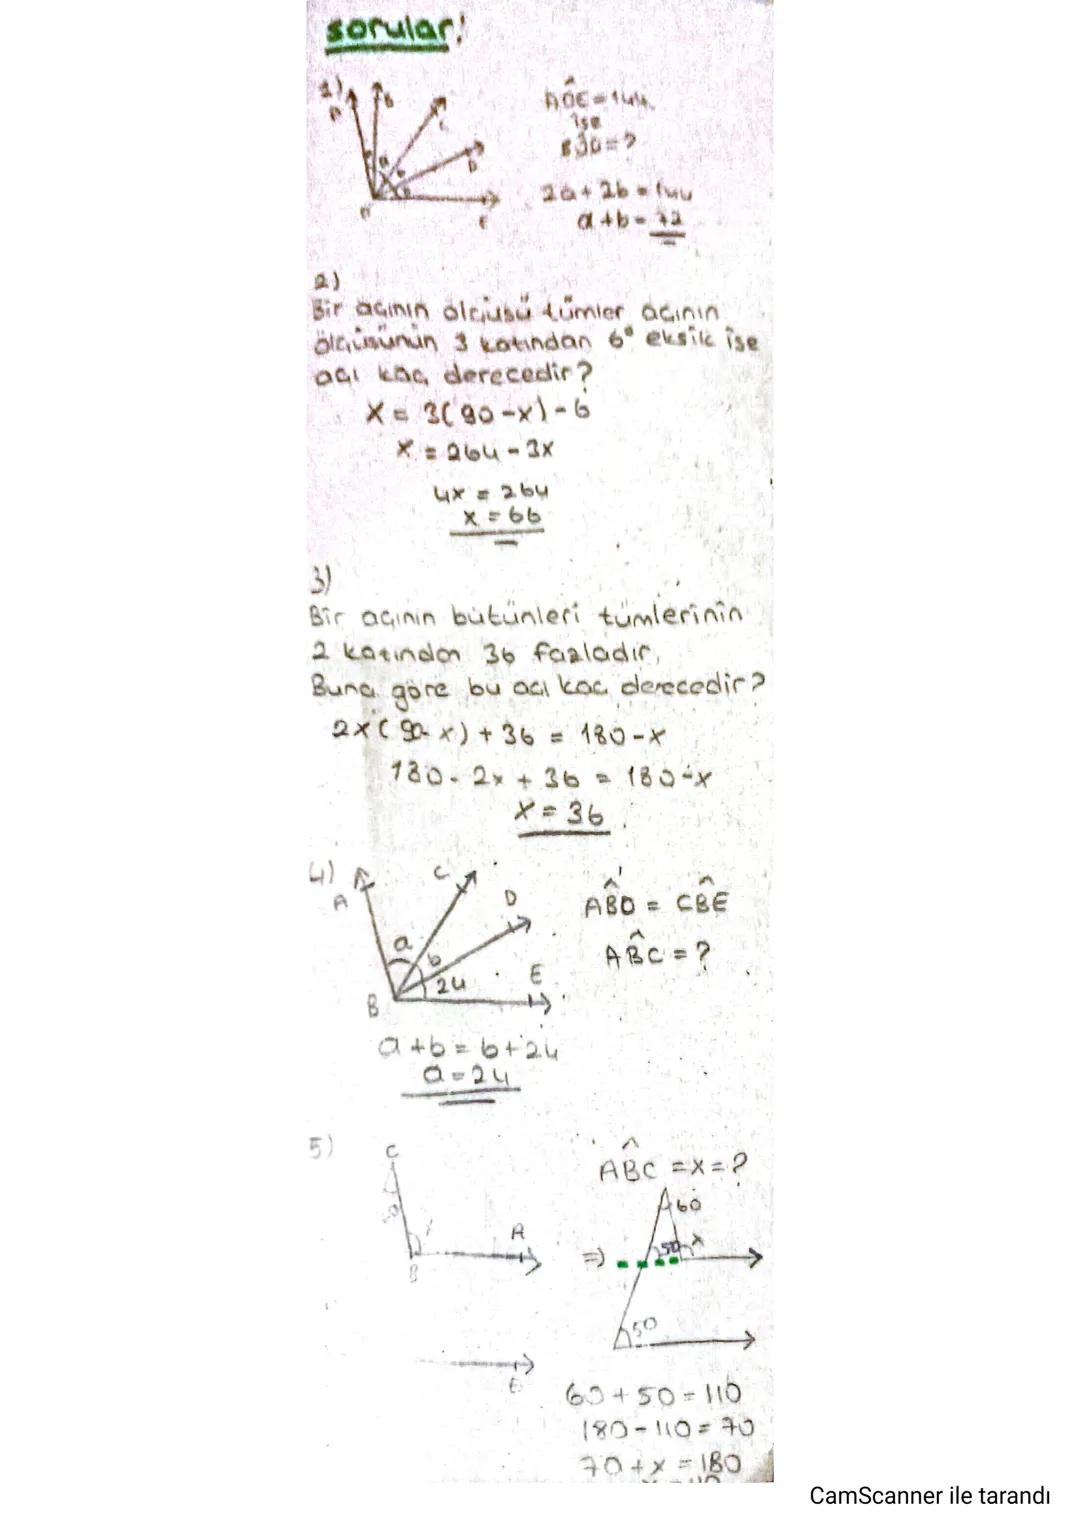 sorular!
1)
A
B
C
D
E
a
b
AÔE = 144
ise
BÔD = ?
2a + 2b = 144
a + b = 72
2)
Bir açının ölçüsü tümler açının
ölçüsünün 3 katından 6° eksik ise
açı kaç derecedir?
x = 3(90-x)-6
x = 264 - 3x
4x = 264
x = 66
3)
Bir açının bütünleri tümlerinin
2 katından 36 fazladır,
Buna göre bu açı kaç derecedir?
2x(90-x) + 36 = 180-x
180 - 2x + 36 = 180-x
x = 36
4)
A
C
D
E
B
a
b
24
AB̂D = CB̂E
AB̂C = ?
a + b = b + 24
a = 24
5)
C
A
B
AB̂C = x = ?
60
50
x
=>
50
60 + 50 = 110
180 - 110 = 70
70 + x = 180